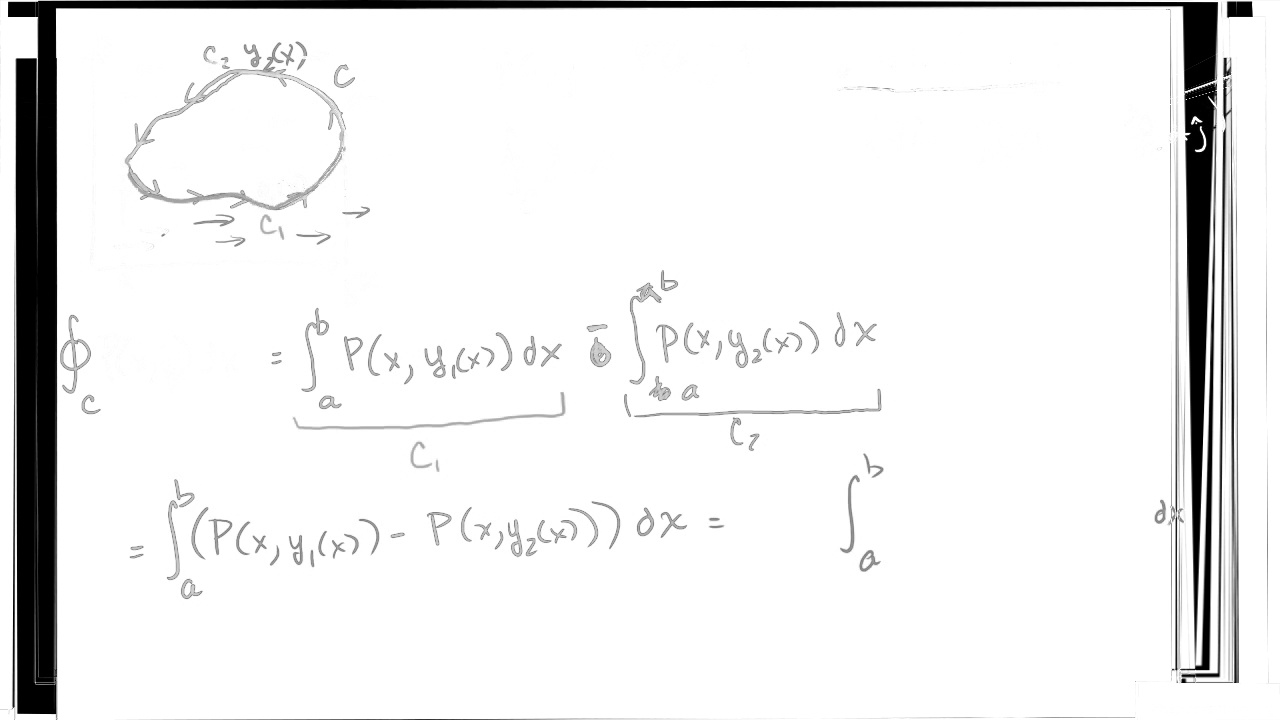 C₂ y₂(x) C
ĵ
C₁
∮_C = ∫_a^b P(x, y₁(x)) dx - ∫_a^b P(x, y₂(x)) dx
C₁ C₂
= ∫_a^b (P(x, y₁(x)) - P(x, y₂(x))) dx = ∫_a^b dx